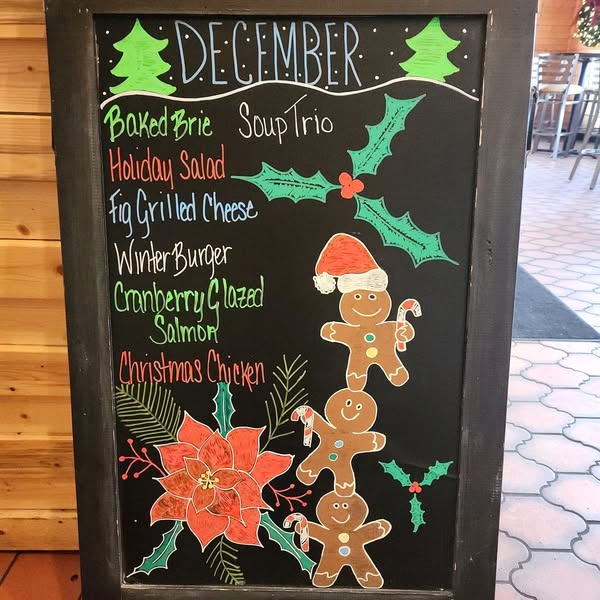 DECEMBER
Baked Brie Soup Trio
Holiday Salad
Fig Grilled Cheese
Winter Burger
Cranberry Glazed
Salmon
Christmas Chicken